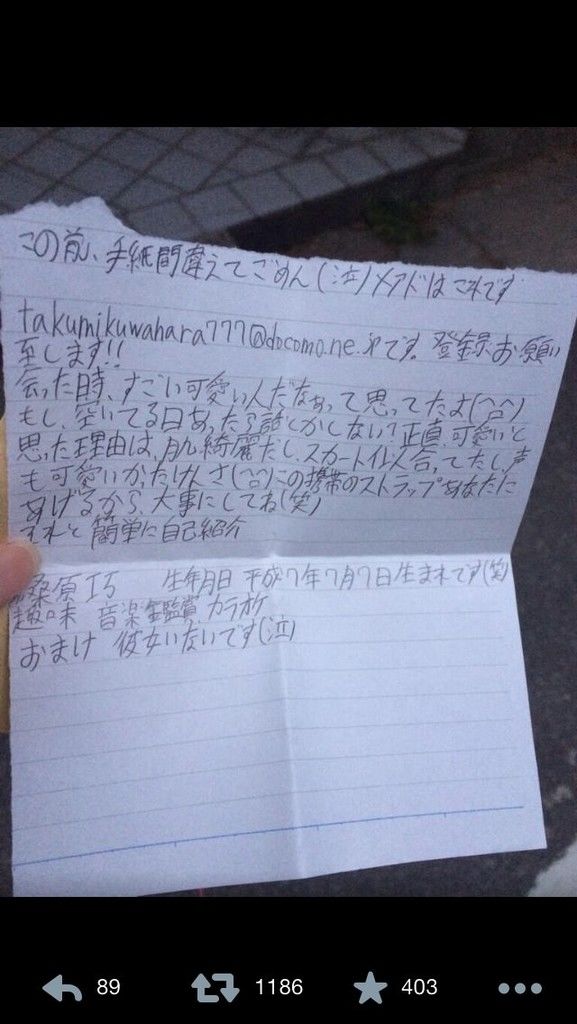 この前、手紙間違えてごめん(泣)メアドはこれです
takumikuwahara777@docomo.ne.jpです。登録お願い
至します!!
会った時、すごい可愛い人だなぁって思ってたよ(^^)
もし、空いてる日あったら話しかしない?正直、可愛いと
思った理由は、肌綺麗だし、スカート似合ってたし、声
も可愛いかったけんさ(^^)この携帯のストラップあなたに
あげるから、大事にしてね(笑)
それと簡単に自己紹介
桑原巧 生年月日 平成7年7月7日生まれです(笑)
趣味 音楽鑑賞、カラオケ
おまけ 彼女いないです(泣)
89 1186 403